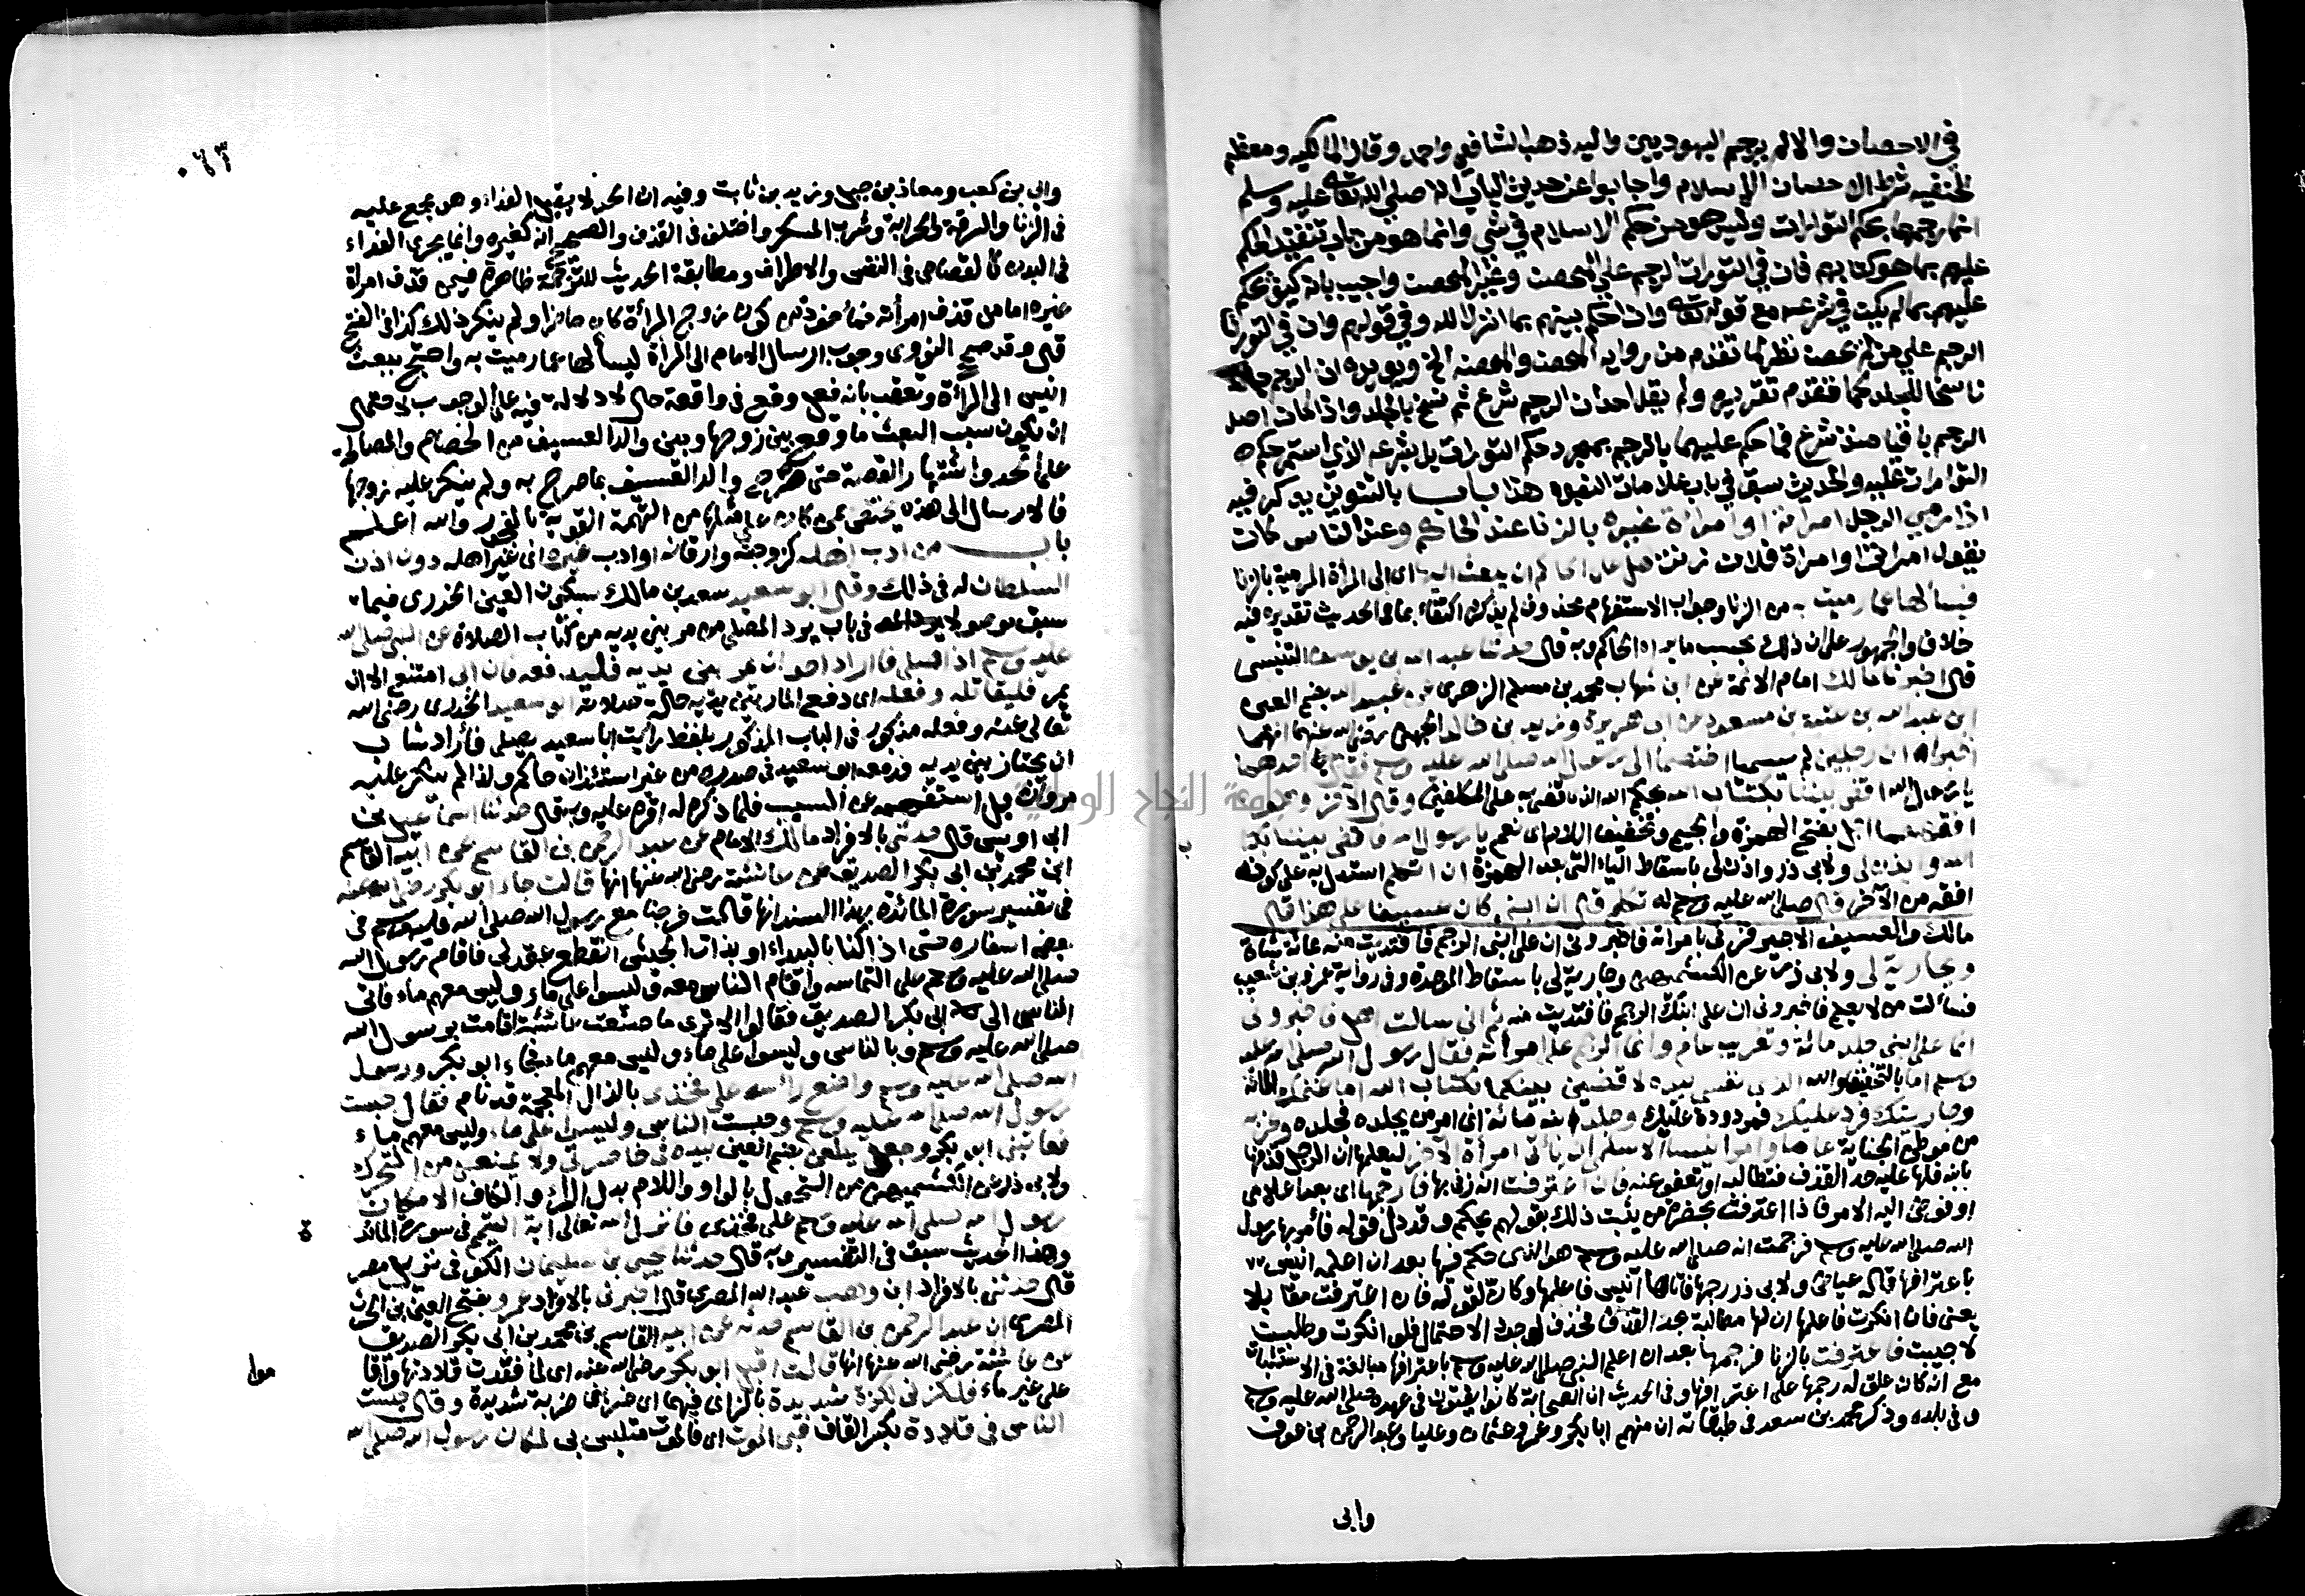 في الاحصان والا لم يرجم اليهوديين واليه ذهب الشافعي واحمد وقال المالكيه ومعظم
الحنفيه شرط الاحصان الاسلام واجابوا عن حديث الباب بانه صلى الله تعالى عليه وسلم
انما رجمهما بحكم التورات وليس هو من حكم الاسلام في شي وانما هو من باب تنفيذ الحكم
عليهم بما هو كتابهم فان في التورات الرجم على المحصن وغير المحصن واجيب بانه كيف يحكم
عليهم بما لم يكن في شرعه مع قوله تعالى وان احكم بينهم بما انزل الله وفي قولهم وان في التورات
الرجم على من لم يحصن نظر لما تقدم من رواية المحصن والمحصنه الخ ويويده ان الرجم جا
ناسخا للجلد كما تقدم تقريره ولم يقل احد ان الرجم شرع ثم نسخ بالجلد واذا كان اصل
الرجم باقيا منذ شرع فما حكم عليهما بالرجم بمجرد حكم التورات بل بشرعه الذي استمر حكم
التورات عليه والحديث سبق في باب علامات النبوه هذا باب بالتنوين يذكر فيه
اذا رمي الرجل امراته او امراة غيره بالزنا عند الحاكم وعند الناس كان
يقول امراتي او امراة فلان زنت هل على الحاكم ان يبعث اليها اى الى المرأة المرمية بالزنا
فيسألها عما رميت به من الزنا وجواب الاستفهام محذوف لم يذكره اكتفاء بما في الحديث تقديره فيه
خلاف والجمهور على ان ذلك بحسب ما يراه الحاكم وبه قال حدثنا عبد الله بن يوسف التنيسى
قال اخبرنا مالك امام الائمة عن ابن شهاب محمد بن مسلم الزهرى عن عبيد الله بضم العين
ابن عبد الله بن عتبة بن مسعود عن ابى هريرة وزيد بن خالد الجهنى رضى الله عنهما انهما
اخبراه ان رجلين لم يسميا اختصما الى رسول الله صلى الله عليه وسلم فقال احدهما
يا رسول الله اقض بيننا بكتاب الله بحكم الله الذى قضى به على المكلفين وقال الآخر وهو
افقههما اجل بفتح الهمزة والجيم وتخفيف اللام اى نعم يا رسول الله فاقض بيننا بكتاب
الله وائذن لى ولابى ذر واذن لى باسقاط الياء التى بعد الهمزة ان اتكلم استدل به على كونه
افقه من الآخر قال صلى الله عليه وسلم له تكلم قال ان ابنى كان عسيفا على هذا قال
مالك والعسيف الاجير فزنى بامراته فاخبرونى ان على ابنى الرجم فافتديت منه بمائة شاة
وبجارية لى ولابى ذر عن الكشميهنى وجارية لى باسقاط الموحدة وفى رواية عمرو بن شعيب
فسألت من لا يعلم فاخبرونى ان على ابنك الرجم فافتديت منه ثم انى سالت اهل فاخبرونى
انما على ابنى جلد مائة وتغريب عام وانما الرجم على امرأته فقال رسول الله صلى الله عليه
وسلم اما بالتخفيف والله الذى نفسى بيده لاقضين بينكما بكتاب الله اما غنمك المائة
وجاريتك فرد عليك فمردودة عليك وجلد ابنه مائة اى امر من يجلده فجلده وغربه
من موطن الجناية عاما وامر انيسا الاسلمى ان يأتى امرأة الآخر ليعلمها ان الرجل قذفها
بابنه فلها عليه حد القذف فتطالبه او تعفو عنه فان اعترفت انه زنى بها فارجمها اى بعد اعلامى
او فوض اليه الامر فاذا اعترفت بحضرة من يثبت ذلك بقولهم يحكم وقد دل قوله فأمر بها رسول
الله صلى الله عليه وسلم فرجمت انه صلى الله عليه وسلم هو الذى حكم فيها بعد ان اعلمه انيس
باعترافها قاله عياض ولابى ذر رجمها فاتاها انيس فاعلمها وكان لقوله فان اعترفت مقابلا
يعنى فان انكرت فاعلمها ان لها مطالبة بحد القذف فحذف لوجود الاحتمال فلو انكرت وطلبت
لاجيبت فاعترفت بالزنا فرجمها بعد ان اعلم النبى صلى الله عليه وسلم باعترافها مبالغة فى الاستثبات
مع انه كان علق له رجمها على اعترافها وفى الحديث ان الصحابة كانوا يفتون فى عهده صلى الله عليه وسلم
وفى بلده وذكر محمد بن سعد فى طبقاته ان منهم ابا بكر وعمر وعثمان وعليا وعبد الرحمن بن عوف
وابى
٠٦٣
وابى بن كعب ومعاذ بن جبل وزيد بن ثابت وفيه ان الحد لا يقبل الفداء وهو مجمع عليه
فى الزنا والسرقة والحرابة وشرب المسكر واختلف فى القذف والصحيح انه كغيره وانما يجرى الفداء
فى البدن كالقصاص فى النفس والاطراف ومطابقة الحديث للترجمة ظاهرة فيمن قذف امراة
غيره اما من قذف امرأته فمأخوذ من كون زوج المرأة كان حاضرا ولم ينكر ذلك كذا فى الفتح
قال وقد صحح النووى وجوب ارسال الامام الى المرأة ليسألها عما رميت به واحتج ببعث
انيس الى المرأة وتعقب بانه فعل وقع فى واقعة حال لا دلالة فيه على الوجوب لاحتمال
ان يكون سبب البعث ما وقع بين زوجها وبين والد العسيف من الخصام والمصالحة
على الحد واشتهار القصة حتى صرح والد العسيف بما صرح به ولم ينكر عليه زوجها
فالارسال الى هذه يختص بمن كان على مثلها من التهمة القوية بالفجور والله اعلم
باب من ادب اهله كزوجته وارقائه او ادب غيره اى غير اهله دون اذن
السلطان له فى ذلك وقال ابو سعيد سعد بن مالك بسكون العين الخدرى فيما
سبق موصولا فى باب يرد المصلى من مر بين يديه من كتاب الصلاة عن النبى صلى الله
عليه وسلم اذا صلى فاراد احد ان يمر بين يديه فليدفعه فان ابى امتنع الا ان
يمر فليقاتله وفعله اى دفع المار بين يديه حالة صلاته ابو سعيد الخدرى رضى الله
تعالى عنه وفعله مذكور فى الباب المذكور بلفظ رأيت ابا سعيد يصلى فأراد شاب
ان يجتاز بين يديه فدفعه ابو سعيد فى صدره من غير استئذان حاكم ولذا لم ينكر عليه
مروان بل استفهمه عن السبب فلما ذكره له اقره عليه وبه قال حدثنا اسماعيل بن
ابى اويس قال حدثنى بالافراد مالك الامام عن عبد الرحمن بن القاسم عن ابيه القاسم
ابن محمد بن ابى بكر الصديق عن عائشة رضى الله عنها انها قالت جاء ابو بكر رضى الله عنه
فى تفسير سورة المائدة بهذا السند انها قالت خرجنا مع رسول الله صلى الله عليه وسلم فى
بعض اسفاره حتى اذا كنا بالبيداء او بذات الجيش انقطع عقد لى فاقام رسول الله
صلى الله عليه وسلم على التماسه واقام الناس معه وليسوا على ماء وليس معهم ماء فاتى
الناس الى ابى بكر الصديق فقالوا الا ترى ما صنعت عائشة اقامت برسول الله
صلى الله عليه وسلم وبالناس وليسوا على ماء وليس معهم ماء فجاء ابو بكر ورسول
الله صلى الله عليه وسلم واضع رأسه على فخذى بالذال المعجمة قد نام فقال حبست
رسول الله صلى الله عليه وسلم وحبست الناس وليسوا على ماء وليس معهم ماء
فعاتبنى ابو بكر وجعل يطعن بضم العين بيده فى خاصرتى ولا يمنعنى من التحرك
ولابى ذر عن الكشميهنى من التحول بالواو واللام بدل الراء والكاف الا مكان
رسول الله صلى الله عليه وسلم على فخذى فانزل الله تعالى اية التيمم فى سورة المائد
ة
وهذا الحديث سبق فى التفسير وبه قال حدثنا يحيى بن سليمان الكوفى نزيل مصر
قال حدثنى بالافراد ابن وهب عبد الله المصرى قال اخبرنى بالافراد عمرو بفتح العين بن الحرث
المصرى ان عبد الرحمن بن القاسم حدثه عن ابيه القاسم بن محمد بن ابى بكر الصديق
عن عائشة رضى الله عنها انها قالت اقبل ابو بكر رضى الله عنه اى لما فقدت قلادتها واقا
موا
على غير ماء فلكزنى لكزة شديدة بالزاى فيهما اى ضربنى ضربة شديدة وقال حبست
الناس فى قلادة بكسر القاف فبى الموت اى فالموت متلبس بى لمكان رسول الله صلى الله
جامعة النجاح الوطنية